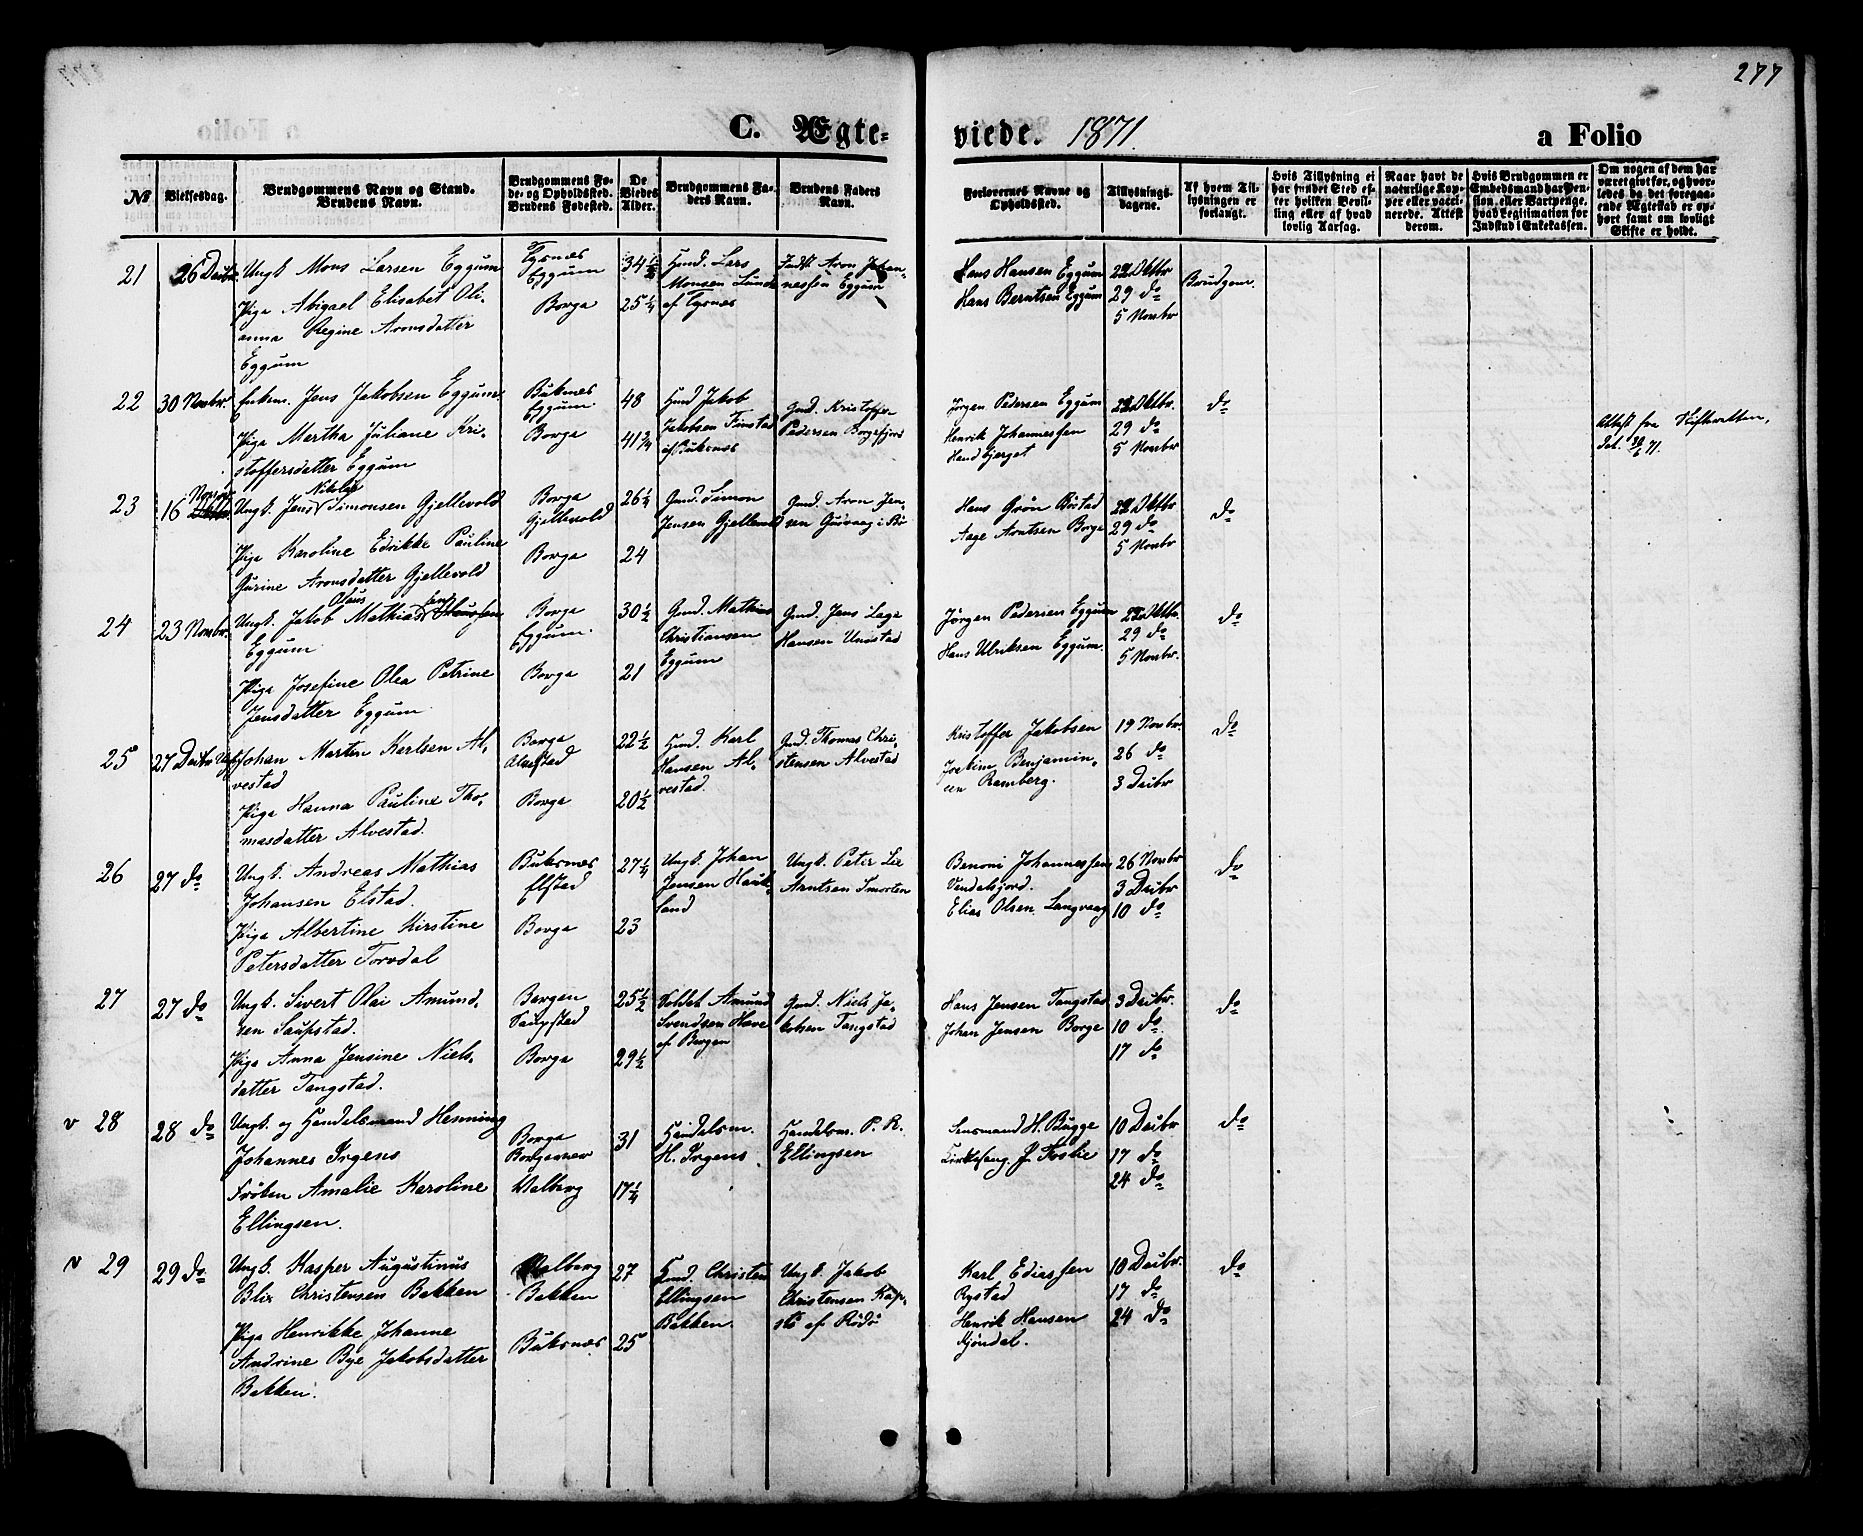 277
C. Ægteviede. 1871. a Folio
№
Vielsesdag.
Brudgommens Navn og Stand.
Brudens Navn.
Brudgommens Fø-
de- og Opholdssted.
Brudens Fødested.
De
Viedes
Alder.
Brudgommens Fa-
ders Navn.
Brudens Faders
Navn.
Forlovernes Navne og
Opholdssted.
Tillysnings-
dagene.
Af hvem Til-
lysningen er
forlangt.
Hvis Tillysning ei
har fundet Sted ef-
ter hvilken Bevil-
ling eller af hvad
lovlig Aarsag.
Naar havt de
naturlige Kop-
per eller vacci-
nerede. Attest
derom.
Hvis Brudgommen er
Embedsmand har Pen-
sion, eller Vartpenge,
hvad Legitimation for
Indskud i Enkekassen.
Om nogen af dem har
været givt før, og hvor-
ledes da det foregaa-
ende Ægteskab er op-
hørt samt om lovligt
Skifte er holdt.
21
26 Decbr.
Ungk. Mons Larsen Eggum
Pige Abigael Elisabet Oli-
anna Regine Aronsdatter
Eggum
Tysnes
Eggum
Borge
34 1/2
25 1/4
Gmd. Lars
Monsen Lunde
af Tysnes
Aron Johan-
nessen Eggum
Hans Hansen Eggum
Hans Berntsen Eggum
22 Oktbr
29 do
5 Novbr
Brudgom.
22
30 Novbr.
Enkem. Jens Jakobsen Eggum
Pige Martha Juliane Kri-
stoffersdatter Eggum
Buksnes
Eggum.
Borge
48
41 3/4
Gmd Jakob
Jakobsen Finstad
af Buksnes
Gmd. Kristoffer
Pedersen Borgefjord
Jørgen Pedersen Eggum
Henrik Johannessen
22 Oktbr.
29 do
5 Novbr
do
Attest fra Skifteretten,
23
16 Novbr
Ungk. Jens Nikolai Simonsen Gjellevold
Pige Karoline Edrikke Pauline
Gurine Aronsdatter Gjellevold
Borge
Gjellevold
Borge
26 1/4
24
Gmd. Simon
Jensen Gjellevold
Gmd. Aron Jen-
sen
Hans Grøn Bøstad
Aage Arntsen Borge
22 Oktbr
29 do
5 Novbr
do
24
23 Novbr.
Ungk. Jakob Olaus Mathiassen
Eggum
Pige Josefine Olea Petrine
Jensdatter Eggum
Borge
Eggum.
Borge
30 1/2
21
Gmd. Mathias
Christiansen
Eggum
Gmd. Jens Lage
Hansen Unstad
Jørgen Pedersen Eggum
Hans Ulriksen Eggum.
22 Oktbr.
29 do
5 Novbr.
do
25
27 Decbr
Ungk. Johan Martin Karlsen Al-
vestad
Pige Hanna Pauline Tho-
masdatter Alvestad.
Borge
Alvestad
Borge
22 1/2
20 1/2
Gmd. Karl
Hansen Al-
vestad.
Gmd. Thomas Chri-
stensen Alvestad
Kristoffer Jakobsen
Joakim Benjamin-
sen Ramberg.
19 Novbr.
26 do
3 Decbr
do
26
27 do
Ungk. Andreas Mathias
Johansen Elstad.
Pige Albertine Kirstine
Petersdatter Torvdal
Buksnes
Elstad
Borge
27 1/4
23
Ungk. Johan
Jensen Hauk-
land
Ungk. Peter Lie
Arntsen Smorten
Benoni Johannessen
Elias Olsen Langvaag
26 Novbr
3 Decbr
10 do
do
27
27 do
Ungk. Sivert Olai Amund-
sen Saupstad.
Pige Anna Jensine Niels-
datter Tangstad.
Bergen
Saupstad
Borge
25 1/2
29 1/2
Soldat Amund
Svendsen Have
af Bergen
Gmd. Niels Ja-
kobsen Tangstad
Hans Jensen Tangstad
Johan Jensen Borge
3 Decbr.
10 do
17 do
do
v 28
28 do
Ungk. og Handelsmand Henning
Johannes Irgens
Frøken Amalie Karoline
Ellingsen.
Borge
Borgevær
Valberg
31
17 1/4
Handelsm.
H. Irgens.
Handelsm. P. R.
Ellingsen
Lensmand H. Bugge
Kirkesang. J. Fosbie
10 Decbr
17 do
24 do
do
v 29
29 do
Ungk. Kasper Augustinus
Blix Christensen Bakken
Pige Henrikke Johanne
Andrine Bye Jakobsdatter
Bakken.
Valberg
Bakken
Buksnæs
27
25
Gmd. Christen
Ellingsen
Bakken.
Ungk. Jakob
Christensen
af Rödö
Karl Ediassen
Rystad
Henrik Hansen
10 Decbr.
17 do
24 do
do